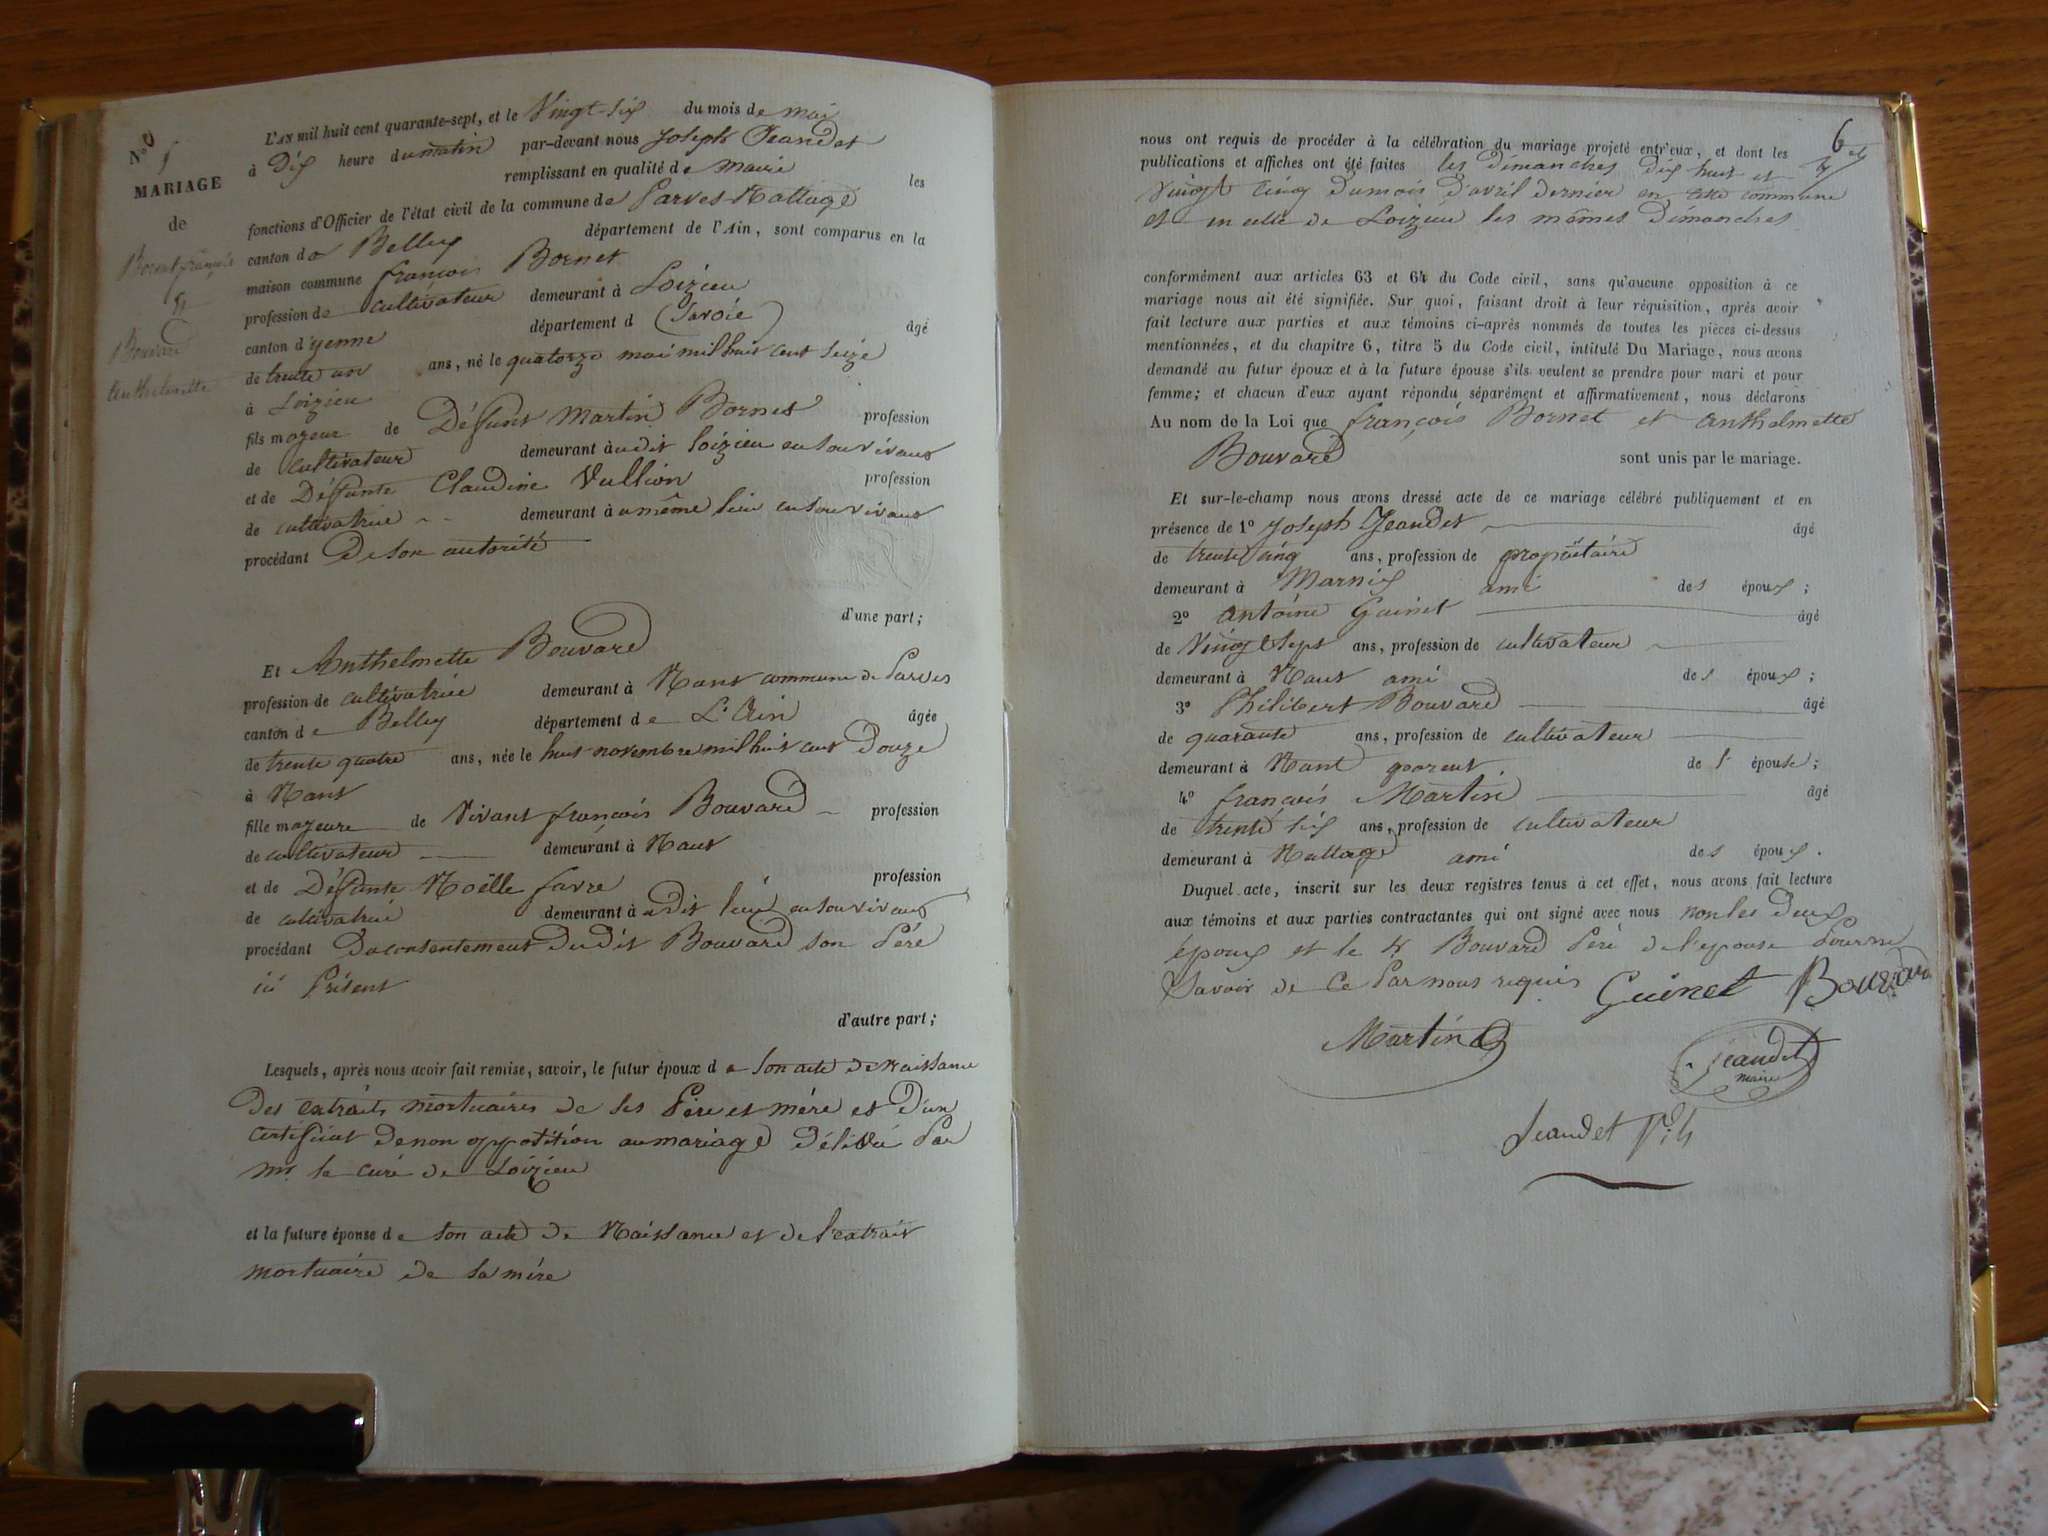 N° 5
MARIAGE
de
Bornet françois
et
Bouvard
Anthelmette
L'AN mil huit cent quarante-sept, et le Vingt six du mois de mai
à Dix heure du matin par-devant nous Joseph Jeandet
remplissant en qualité de Maire les
fonctions d'Officier de l'état civil de la commune de Parves Nattage
canton de Belley département de l'Ain, sont comparus en la
maison commune françois Bornet
profession de cultivateur demeurant à Loizieu
canton d'yenne département d (Savoie) âgé
de trente un ans, né le quatorze mai mil huit cent seize
à Loizieu
fils majeur de Défunt Martin Bornet profession
de cultivateur demeurant audit loizieu en son vivant
et de Défunte Claudine Vullion profession
de cultivatrice demeurant à même lieu en son vivant
procédant De son autorité
d'une part;
Et Anthelmette Bouvard
profession de cultivatrice demeurant à Nant commune de Parves
canton de Belley département de L'Ain âgée
de trente quatre ans, née le huit novembre mil huit cent Douze
à Nant
fille majeure de Vivant françois Bouvard profession
de cultivateur demeurant à Nant
et de Défunte Noëlle favre profession
de cultivatrice demeurant audit lieu en son vivant
procédant Du consentement Dudit Bouvard son Père
ici Présent
d'autre part;
Lesquels, après nous avoir fait remise, savoir, le futur époux de son acte de Naissance
Des extraits mortuaires de ses Père et mère et D'un
certificat de non oppotition au mariage Délivré Par
mr. le curé de Loizieu
et la future épouse de son acte de Naissance et de l'extrait
mortuaire de sa mère
6
nous ont requis de procéder à la célébration du mariage projeté entr'eux, et dont les
publications et affiches ont été faites les dimanches dix huit et
vingt cinq du mois d'avril dernier en cette commune
et en celle de Loizieu les mêmes Dimanches
conformément aux articles 63 et 64 du Code civil, sans qu'aucune opposition à ce
mariage nous ait été signifiée. Sur quoi, faisant droit à leur réquisition, après avoir
fait lecture aux parties et aux témoins ci-après nommés de toutes les pièces ci-dessus
mentionnées, et du chapitre 6, titre 5 du Code civil, intitulé Du Mariage, nous avons
demandé au futur époux et à la future épouse s'ils veulent se prendre pour mari et pour
femme; et chacun d'eux ayant répondu séparément et affirmativement, nous déclarons
Au nom de la Loi que françois Bornet et Anthelmette
Bouvard sont unis par le mariage.
Et sur-le-champ nous avons dressé acte de ce mariage célébré publiquement et en
présence de 1° Joseph Jeandet âgé
de trente cinq ans, profession de propriétaire
demeurant à Marnix ami des époux;
2° Antoine Guinet âgé
de Vingt Sept ans, profession de cultivateur
demeurant à Nant ami des époux;
3° Philibert Bouvard âgé
de quarante ans, profession de cultivateur
demeurant à Nant parent de l'épouse;
4° françois Martin âgé
de trente six ans, profession de cultivateur
demeurant à Nattage ami des époux.
Duquel acte, inscrit sur les deux registres tenus à cet effet, nous avons fait lecture
aux témoins et aux parties contractantes qui ont signé avec nous non les deux
époux et le Sr Bouvard Père de l'épouse Pour ne
Savoir de Ce Par nous requis Guinet Bouvard
Martin Jeandet
maire
Jeandet